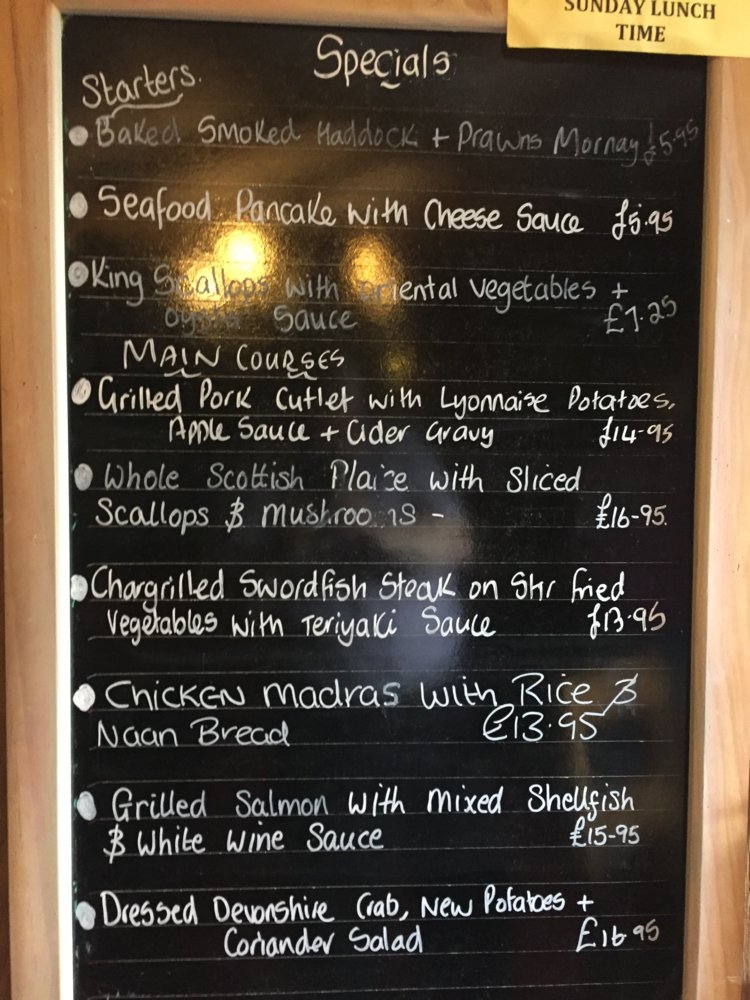 SUNDAY LUNCH
TIME
Specials
Starters.
Baked Smoked Haddock + Prawns Mornay £5.95
Seafood Pancake with Cheese Sauce £5.95
King Scallops with oriental vegetables +
oyster Sauce £7.25
MAIN COURSES
Grilled Pork Cutlet with Lyonnaise Potatoes,
Apple Sauce + Cider Gravy £14-95
Whole Scottish Plaice with Sliced
Scallops & Mushrooms - £16-95.
Chargrilled Swordfish Steak on Stir fried
Vegetables with Teriyaki Sauce £13.95
Chicken Madras with Rice &
Naan Bread £13.95
Grilled Salmon with Mixed Shellfish
& White Wine Sauce £15-95
Dressed Devonshire Crab, New Potatoes +
Coriander Salad £16.95